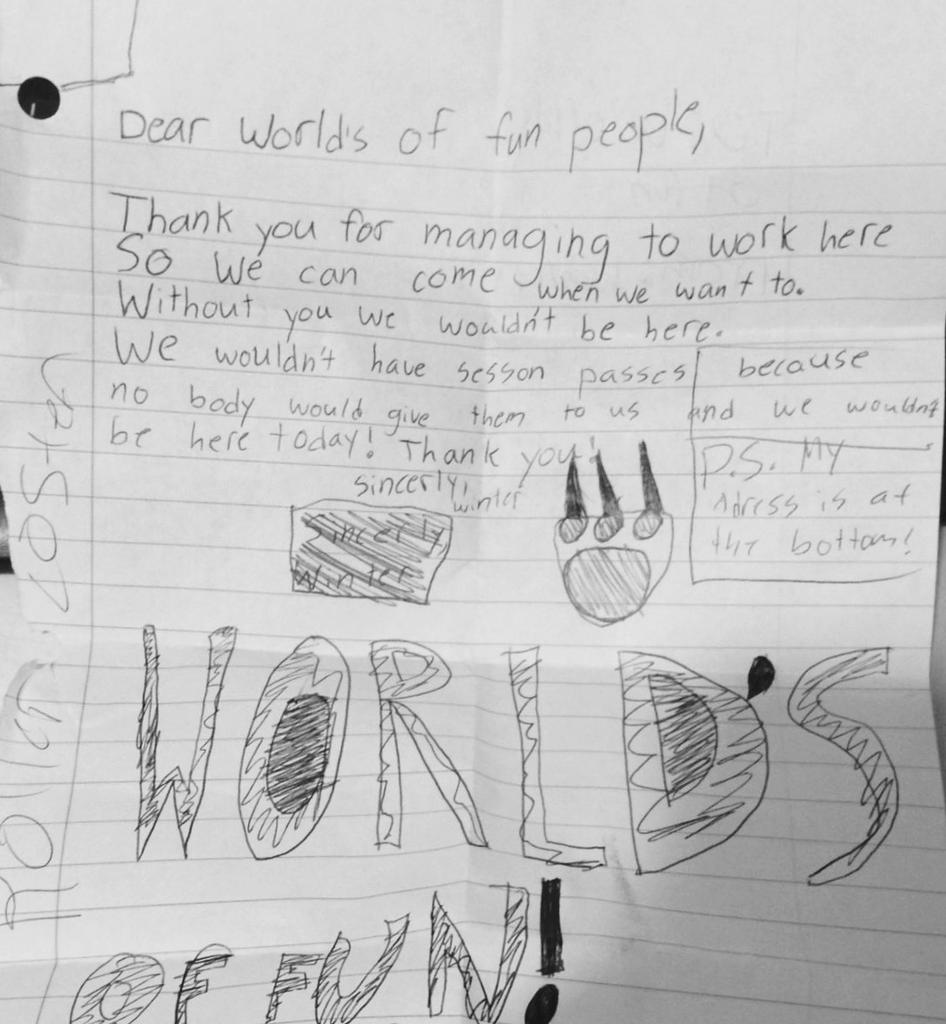 Dear World's of fun people,
Thank you for managing to work here
So we can come when we want to.
Without you we wouldn't be here.
We wouldn't have sesson passes because
no body would give them to us and we wouldn't
be here today! Thank you!
sincerly,
winter
Sincerly
Winter
P.S. My
Adress is at
the bottom!
Roller coaster
WORLD'S
OF FUN!